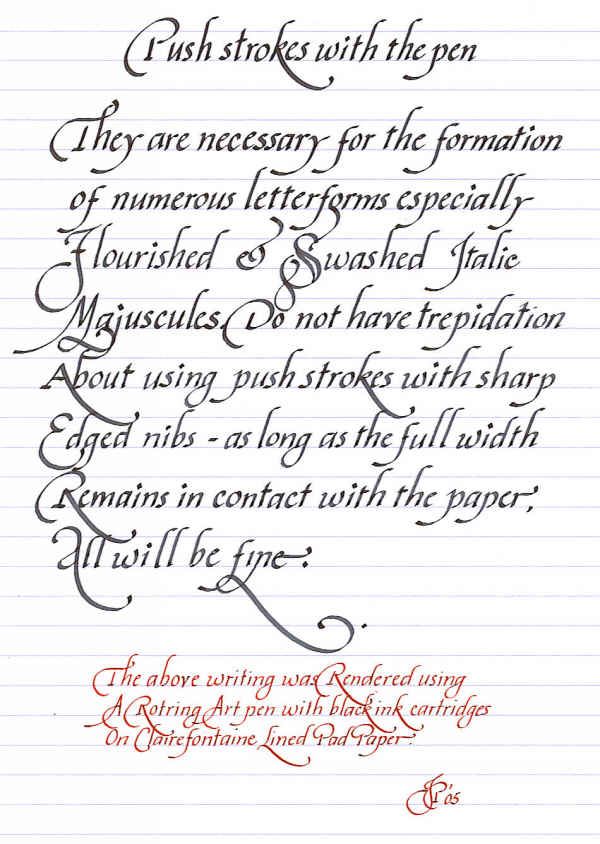 Push strokes with the pen
They are necessary for the formation
of numerous letterforms especially
Flourished & Swashed Italic
Majuscules. Do not have trepidation
About using push strokes with sharp
Edged nibs - as long as the full width
Remains in contact with the paper,
All will be fine.
The above writing was Rendered using
A Rotring Art pen with black ink cartridges
On Clairefontaine Lined Pad Paper.
'05